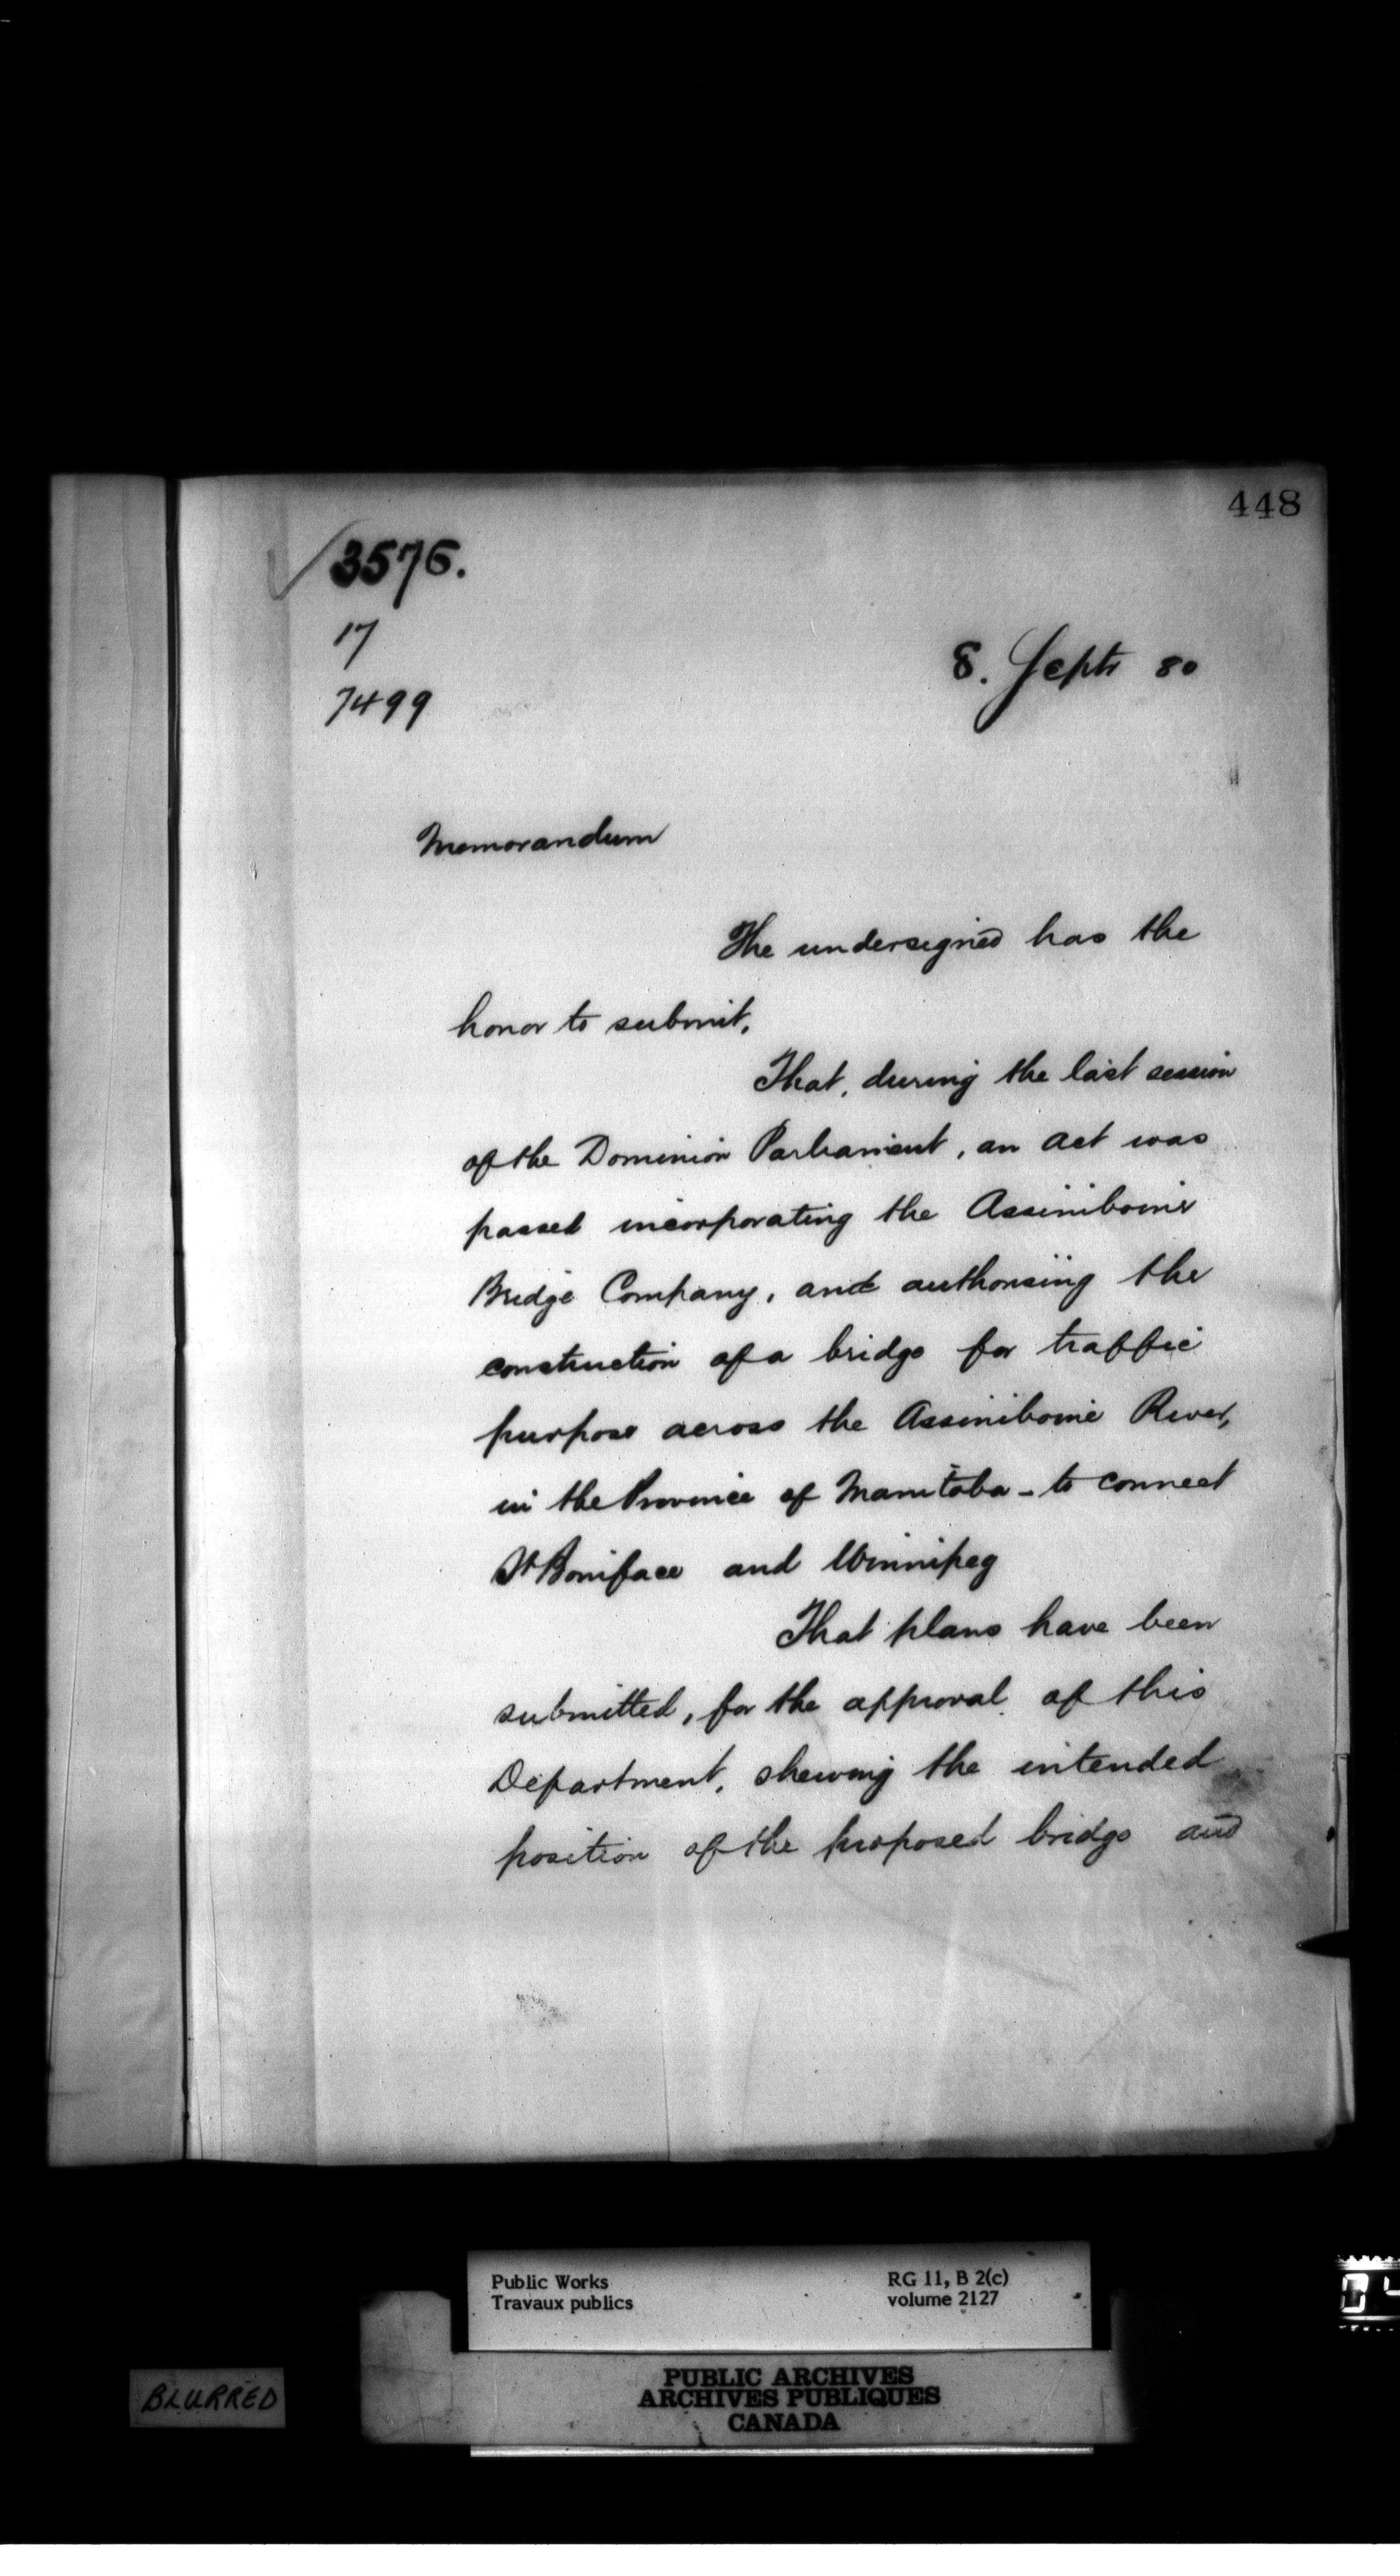 448
3576.
17
7499
8. Septr 80
Memorandum
The undersigned has the
honor to submit,
That, during the last session
of the Dominion Parliament, an act was
passed incorporating the Assiniboine
Bridge Company, and authorising the
construction of a bridge for traffic
purpose across the Assiniboine River,
in the Province of Manitoba - to connect
St Boniface and Winnipeg
That plans have been
submitted, for the approval of this
Department, shewing the intended
position of the proposed bridge and
Public Works
Travaux publics
RG 11, B 2(c)
volume 2127
BLURRED
PUBLIC ARCHIVES
ARCHIVES PUBLIQUES
CANADA